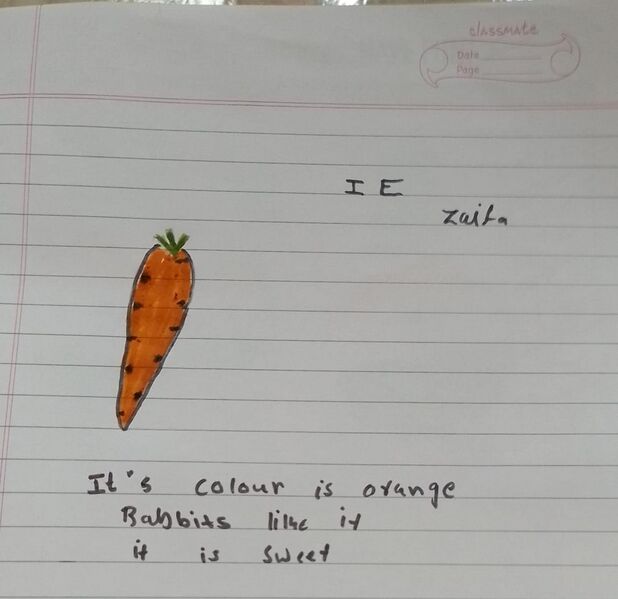 classmate
Date
Page
I E
Zaita
It's colour is orange
Rabbits like it
it is sweet